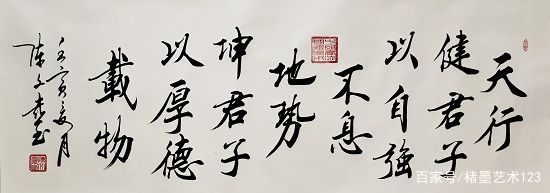 天行
健君子
以自強
不息
地勢
坤君子
以厚德
載物
壬寅夏月
百家号/楮墨艺术123